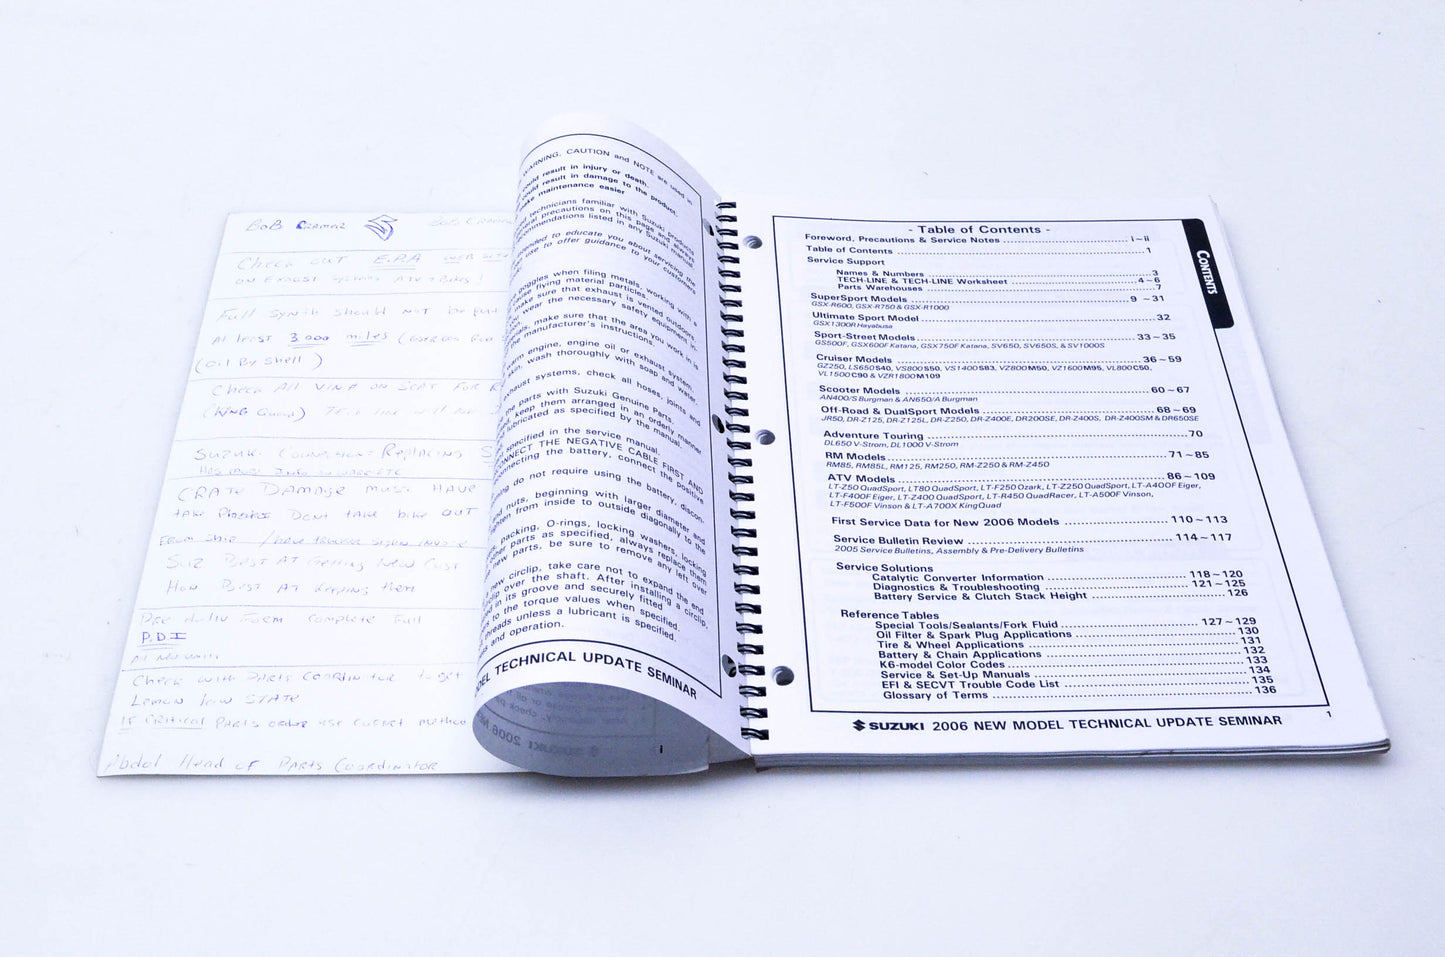 BoB Cramar
Check out E.P.A
on Exhaust systems ATV + Bikes!
Full Synth Should Not be
At least 3000 miles
(oil By Shell)
Check All VIN# ON SEAT FOR
Suzuki Connection Replacing
CRATE DAMAGE must HAVE
take Dont take bike OUT
From Ship
Suz Best AT Getting New Cust
Hon Best AT Keeping them
Form Complete Full
P.D.I
Check with PARTS COORDINATOR to get
Lemon law STATE
IF Critical PARTS order use correct method
Abdol Head OF PARTS Coordinator
WARNING, CAUTION and NOTE are used in
could result in injury or death.
could result in damage to the product.
make maintenance easier
technicians familiar with Suzuki products
general precautions on this page and always
recommendations listed in any Suzuki manual.
intended to educate you about servicing the
use to offer guidance to your customers
goggles when filing metals, working with a
flying material particles.
make sure that exhaust is vented outdoors
wear the necessary safety equipment is
make sure that the area you work in is
the manufacturer's instructions.
engine, engine oil or exhaust system.
wash thoroughly with soap and water.
exhaust systems, check all hoses, joints and
parts with Suzuki Genuine Parts.
keep them arranged in an orderly manner
lubricated as specified by the manual.
specified in the service manual.
CONNECT THE NEGATIVE CABLE FIRST AND
connecting the battery, connect the positive
do not require using the battery, discon-
nuts, beginning with larger diameter and
from inside to outside diagonally to the
packing, O-rings, locking washers, locking
parts as specified, always replace them
new parts, be sure to remove any left over
new circlip, take care not to expand the end
over the shaft. After installing a circlip,
in its groove and securely fitted
to the torque values when specified.
threads unless a lubricant is specified.
and operation.
TECHNICAL UPDATE SEMINAR
i
- Table of Contents -
Foreword, Precautions & Service Notes i~ii
Table of Contents 1
Service Support
Names & Numbers 3
TECH-LINE & TECH-LINE Worksheet 4~6
Parts Warehouses 7
SuperSport Models 9 ~31
GSX-R600, GSX-R750 & GSX-R1000
Ultimate Sport Model 32
GSX1300R Hayabusa
Sport-Street Models 33~35
GS500F, GSX600F Katana, GSX750F Katana, SV650, SV650S, & SV1000S
Cruiser Models 36~59
GZ250, LS650S40, VS800S50, VS1400S83, VZ800M50, VZ1600M95, VL800C50,
VL1500C90 & VZR1800M109
Scooter Models 60~67
AN400/S Burgman & AN650/A Burgman
Off-Road & DualSport Models 68~69
JR50, DR-Z125, DR-Z125L, DR-Z250, DR-Z400E, DR200SE, DR-Z400S, DR-Z400SM & DR650SE
Adventure Touring 70
DL650 V-Strom, DL1000 V-Strom
RM Models 71~85
RM85, RM85L, RM125, RM250, RM-Z250 & RM-Z450
ATV Models 86~109
LT-Z50 QuadSport, LT80 QuadSport, LT-F250 Ozark, LT-Z250 QuadSport, LT-A400F Eiger,
LT-F400F Eiger, LT-Z400 QuadSport, LT-R450 QuadRacer, LT-A500F Vinson,
LT-F500F Vinson & LT-A700X KingQuad
First Service Data for New 2006 Models 110~113
Service Bulletin Review 114~117
2005 Service Bulletins, Assembly & Pre-Delivery Bulletins
Service Solutions
Catalytic Converter Information 118~120
Diagnostics & Troubleshooting 121~125
Battery Service & Clutch Stack Height 126
Reference Tables
Special Tools/Sealants/Fork Fluid 127~129
Oil Filter & Spark Plug Applications 130
Tire & Wheel Applications 131
Battery & Chain Applications 132
K6-model Color Codes 133
Service & Set-Up Manuals 134
EFI & SECVT Trouble Code List 135
Glossary of Terms 136
SUZUKI 2006 NEW MODEL TECHNICAL UPDATE SEMINAR
1
CONTENTS